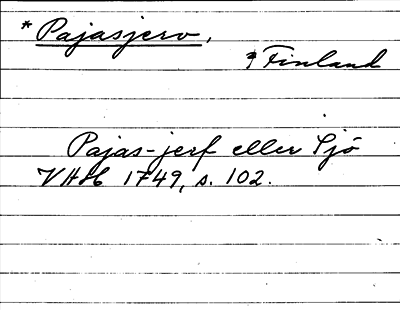 * Pajasjerv,
Finland
Pajas-jerf eller Sjö
VHAH 1749, s. 102.